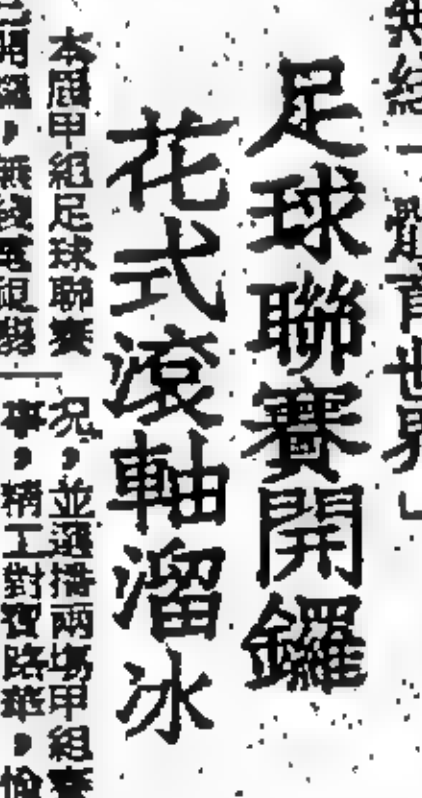 體育世界」
足球聯賽開鑼
花式滾軸溜冰
本屆甲組足球聯賽
已開鑼，無綫電視
況，並選播兩場甲組賽
事，精工對寶路華，愉